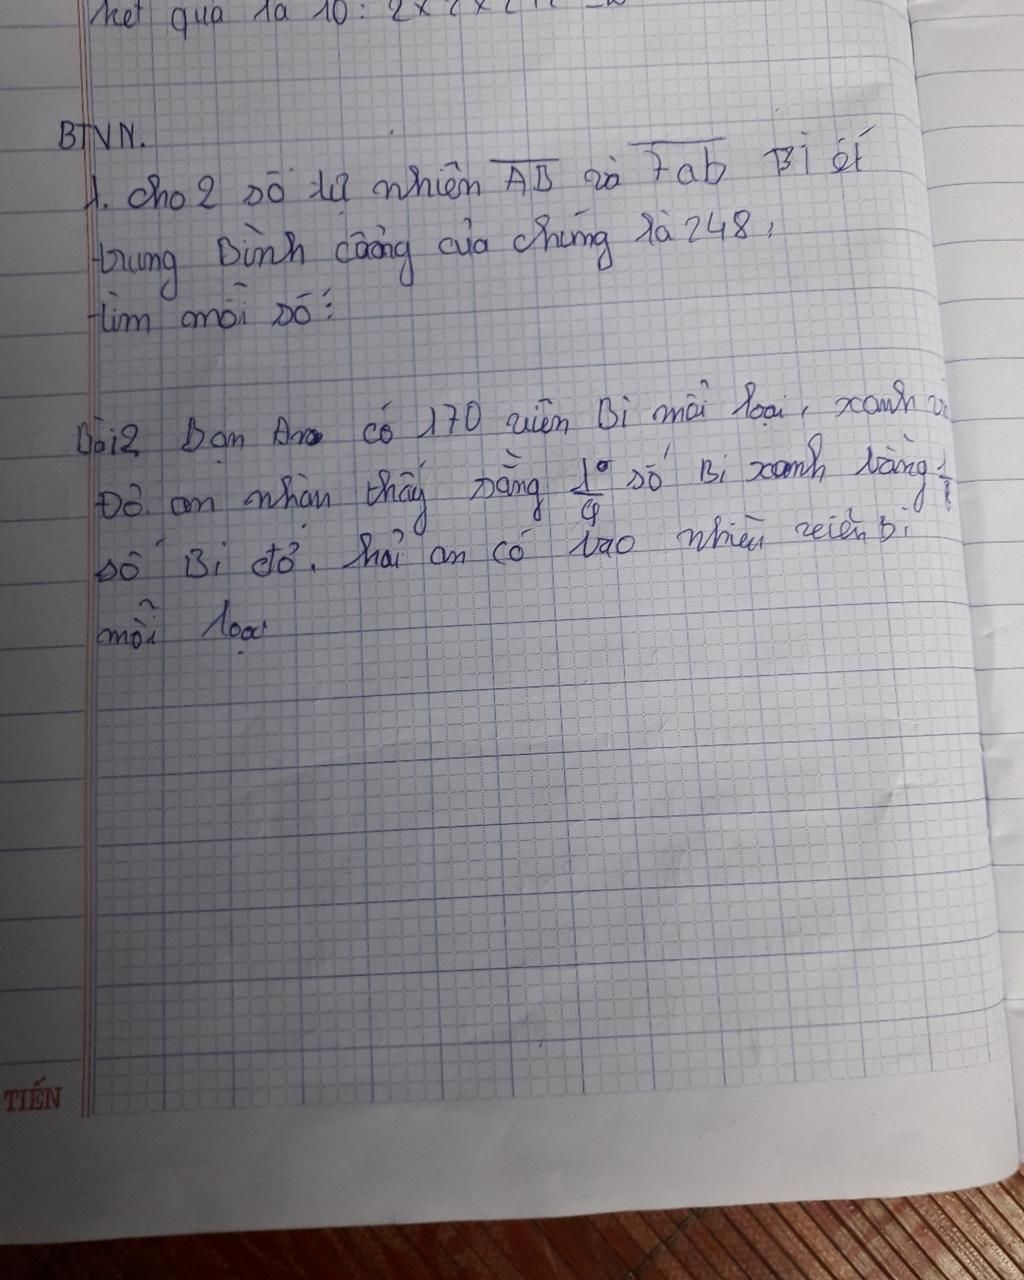 kết quả là 10: 2 x
BTVN.
1. Cho 2 số tự nhiên AB và 7ab Biết
trung Bình cộng của chúng là 248,
tìm mỗi số?
Bài 2 Bạn An có 170 viên Bi mỗi loại, xanh và
Đỏ. an nhận thấy rằng 1/9 số Bi xanh bằng
số Bi đỏ. hỏi an có bao nhiêu viên Bi
mỗi loại
TIẾN